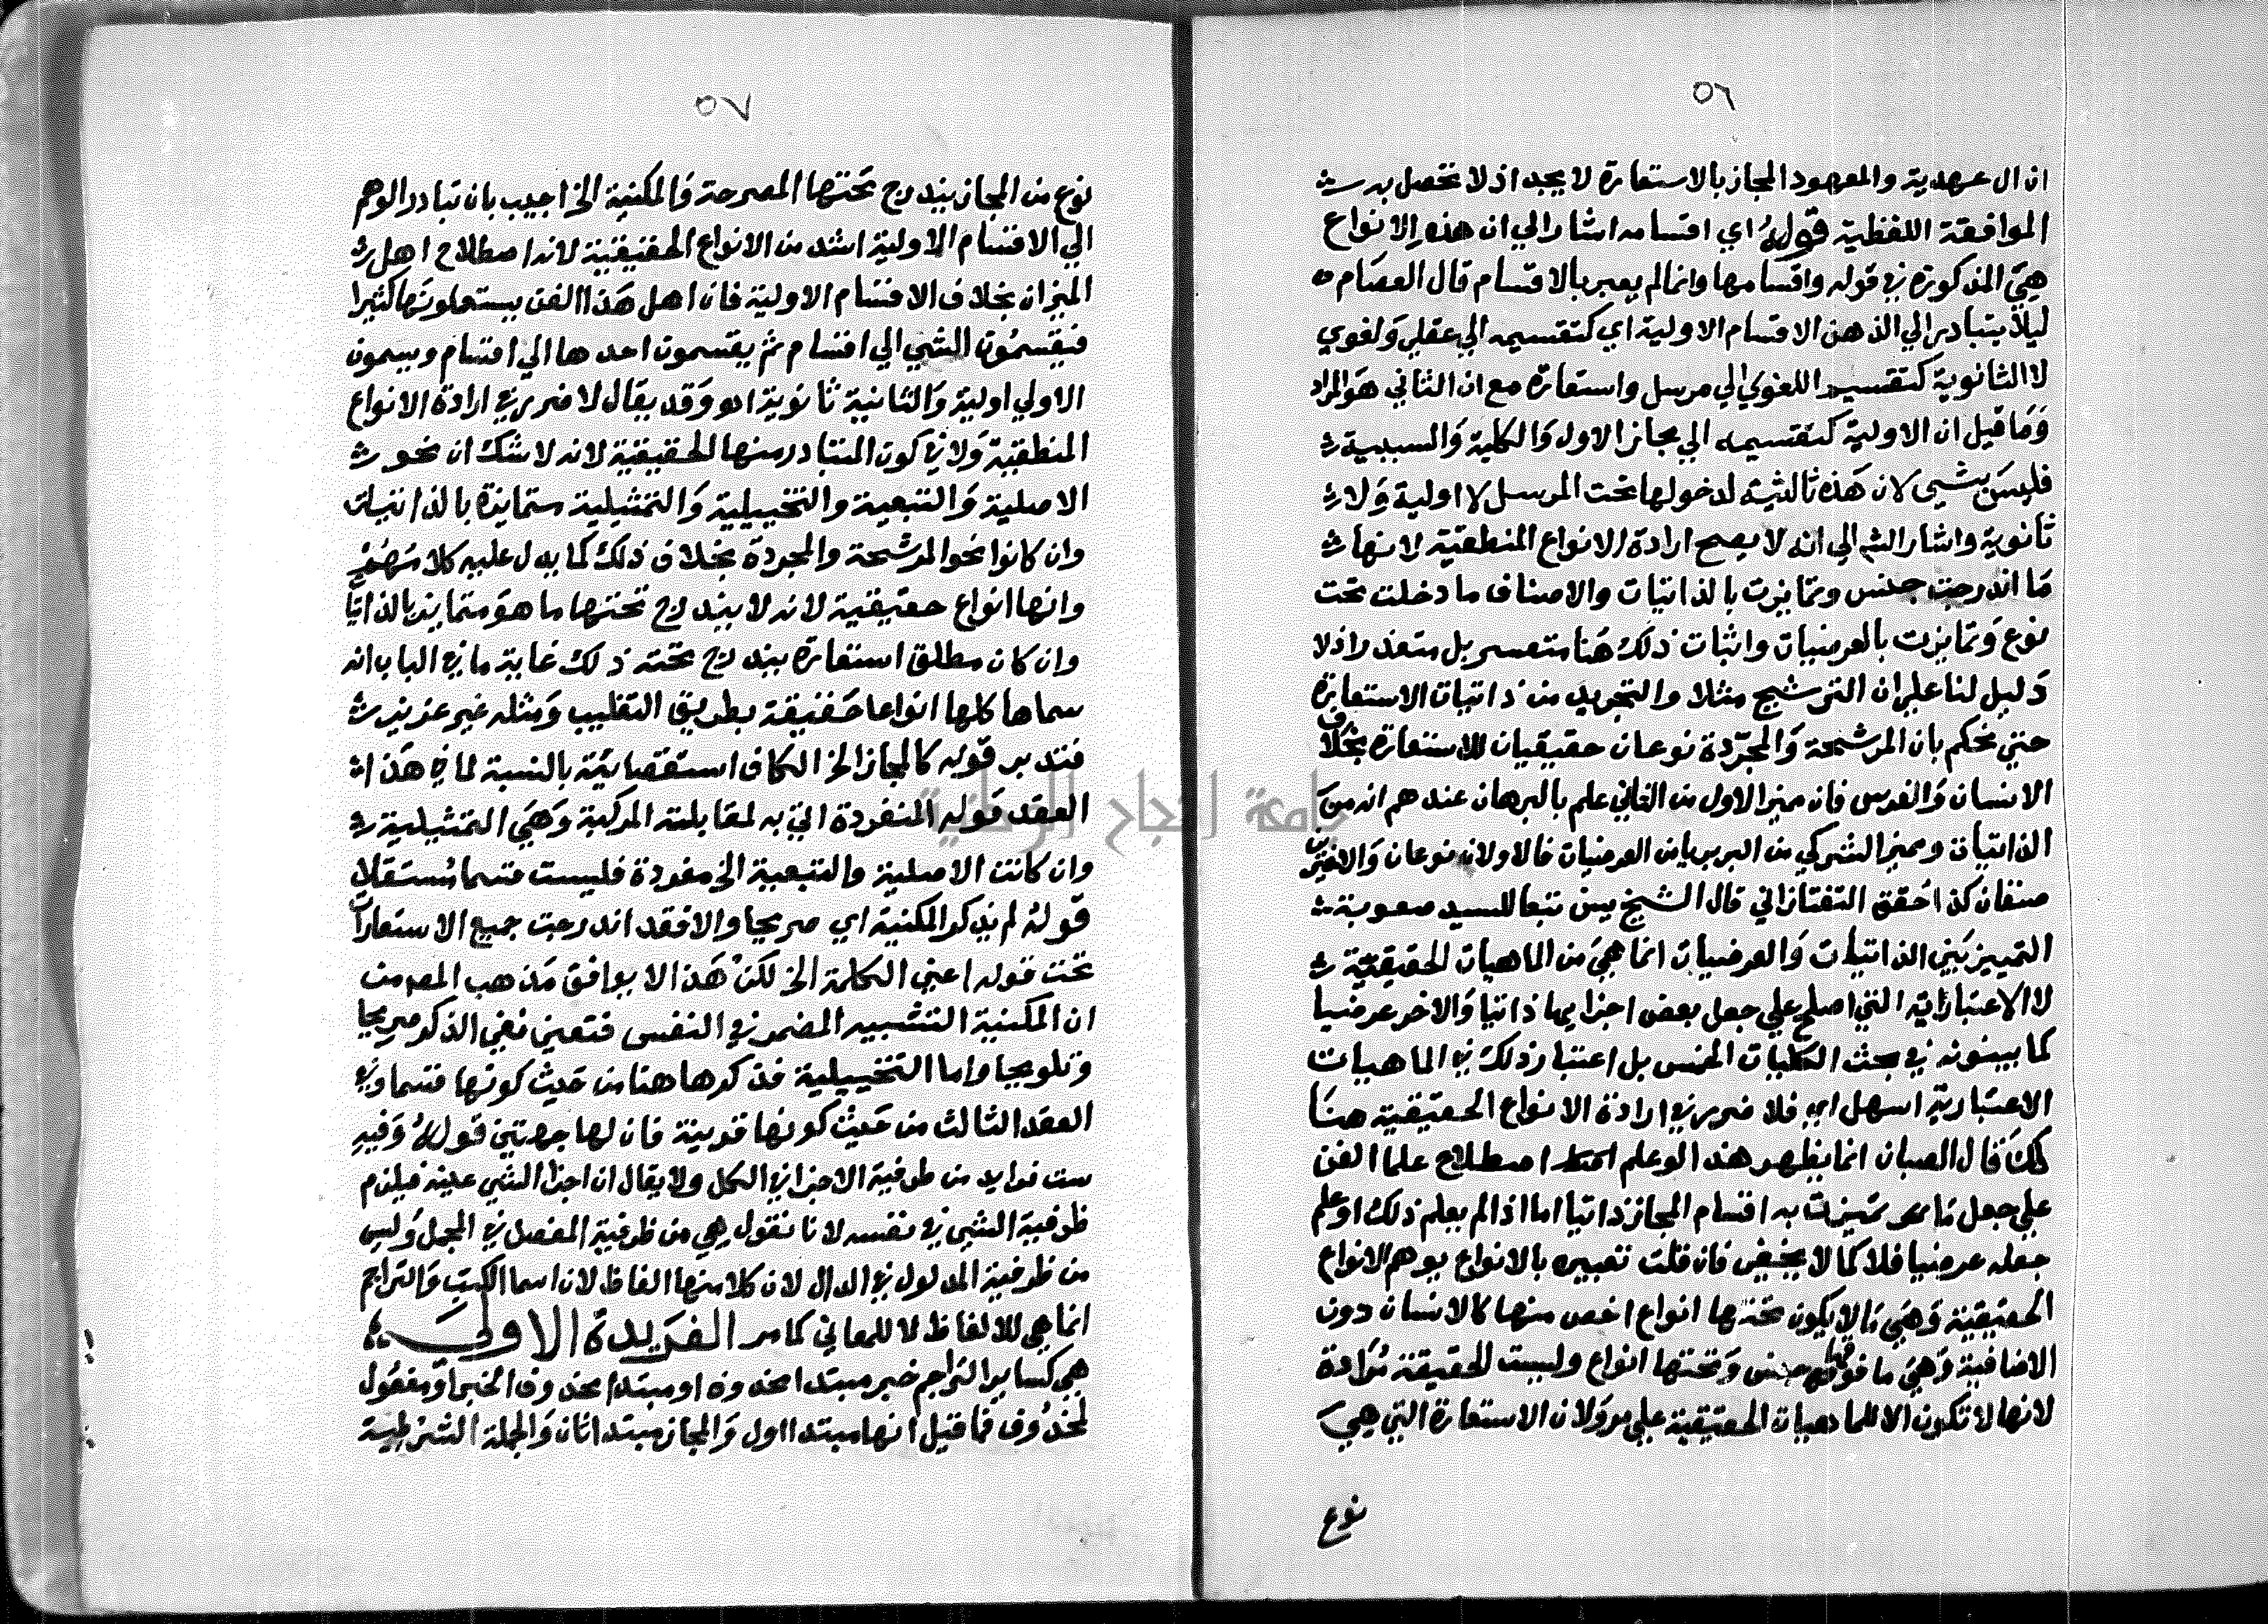 ٥٦
ان ال عهدية والمعهود المجاز بالاستعارة لا يجد اذ لا تحصل به
الموافقة اللفظية قوله اي اقسامه اشار الي ان هذه الانواع
هي المذكورة في قوله واقسامها وانما لم يعبر بالاقسام قال العصام
ليلا يتبادر الي الذهن الاقسام الاولية اي كتقسيمه الي عقلي ولغوي
لا الثانوية كتقسيم اللغوي الي مرسل واستعارة مع ان الثاني هو المراد
وما قيل ان الاولية كتقسيمه الي مجاز الاول والكلية والسببية
فليس بشي لان هذه ثالثية لدخولها تحت المرسل لا اولية ولا
ثانوية واشار الش الي انه لا يصح ارادة الانواع المنطقية لانها
ما اندرجت جنس وتمايزت بالذاتيات والاصناف ما دخلت تحت
نوع وتمايزت بالعرضيات واثبات ذلك هنا متعسر بل متعذر اذ لا
دليل لنا علي ان الترشيح مثلا والتجريد من ذاتيات الاستعارة
حتي نحكم بان المرشحة والمجردة نوعان حقيقيان للاستعارة بخلاف
الانسان والفرس فان مميز الاول من الثاني علم بالبرهان عندهم انه من
الذاتيات ومميز التركي من البربري من العرضيات فالاولان نوعان والاخيرين
صنفان كذا حقق التفتازاني قال الشيخ يس تبعا للسيد صعوبة
التمييز بين الذاتيات والعرضيات انما هي من الماهيات الحقيقية
لا الاعتبارية التي اصطلح علي جعل بعض اجزايها ذاتيا والاخر عرضيا
كما بينونه في بحث الكليات الخمس بل اعتبار ذلك في الماهيات
الاعتبارية اسهل اي فلا ضرر في ارادة الانواع الحقيقية هنا
لكن قال الصبان انما يظهر هذا لو علم اصطلاح علما الفن
علي جعل ما تميزت به اقسام المجاز ذاتيا اما اذا لم يعلم ذلك او علم
جعله عرضيا فلا كما لا يخفي فان قلت تعبيره بالانواع يوهم الانواع
الحقيقية وهي ما لا يكون تحتها انواع اخص منها كالانسان دون
الاضافية وهي ما فوقها جنس وتحتها انواع وليست الحقيقة مرادة
لانها لا تكون الا للماهيات الحقيقية علي مر ولان الاستعارة التي هي
نوع
٥٧
نوع من المجاز يندرج تحتها المصرحة والمكنية الخ اجيب بان تبادر الوهم
الي الاقسام الاولية اشد من الانواع الحقيقية لانه اصطلاح اهل
الميزان بخلاف الاقسام الاولية فان اهل هذا الفن يستعملونها كثيرا
فيقسمون الشي الي اقسام ثم يقسمون احدها الي اقسام ويسمون
الاولي اولية والثانية ثانوية اه وقد يقال لا ضرر في ارادة الانواع
المنطقية ولا في كون المتبادر منها الحقيقية لانه لا شك ان نحو
الاصلية والتبعية والتخييلية والتمثيلية متمايزة بالذاتيات
وان كانوا نحو المرشحة والمجردة بخلاف ذلك كما يدل عليه كلامهم
وانها انواع حقيقية لانه لا يندرج تحتها ما هو متمايز بالذاتيا
وان كان مطلق استعارة يندرج تحته ذلك غاية ما في الباب انه
سماها كلها انواعا حقيقة بطريق التغليب ومثله غير عزيز
فتدبر قوله كالمجاز الخ الكاف استقصائية بالنسبة لما في هذا
العقد قوله المنفردة اتي به لمقابلته المركبة وهي التمثيلية
وان كانت الاصلية والتبعية الخ مفردة فليست قسما مستقلا
قوله لم يذكر المكنية اي صريحا والا فقد اندرجت جميع الاستعارات
تحت قوله اعني الكلمة الخ لكن هذا لا يوافق مذهب المص من
ان المكنية التشبيه المضمر في النفس فتعين نفي الذكر صريحا
وتلويحا واما التخييلية فذكرها هنا من حيث كونها قسما وفي
العقد الثالث من حيث كونها قرينة فان لها جهتين قوله وفيه
ست فرايد من ظرفية الاجزا في الكل ولا يقال ان اجزا الشي عينه فيلزم
ظرفية الشي في نفسه لانا نقول هي من ظرفية المفصل في المجمل وليس
من ظرفية المدلول في الدال لان كلا منها الفاظ لان اسما الكتب والتراجم
انما هي للالفاظ لا للمعاني كما مر الفريدة الاولي
هي كساير التراجم خبر مبتدا محذوف او مبتدا محذوف الخبر او مفعول
لمحذوف فما قيل انها مبتدا اول والمجاز مبتدا ثان والجملة الشرطية